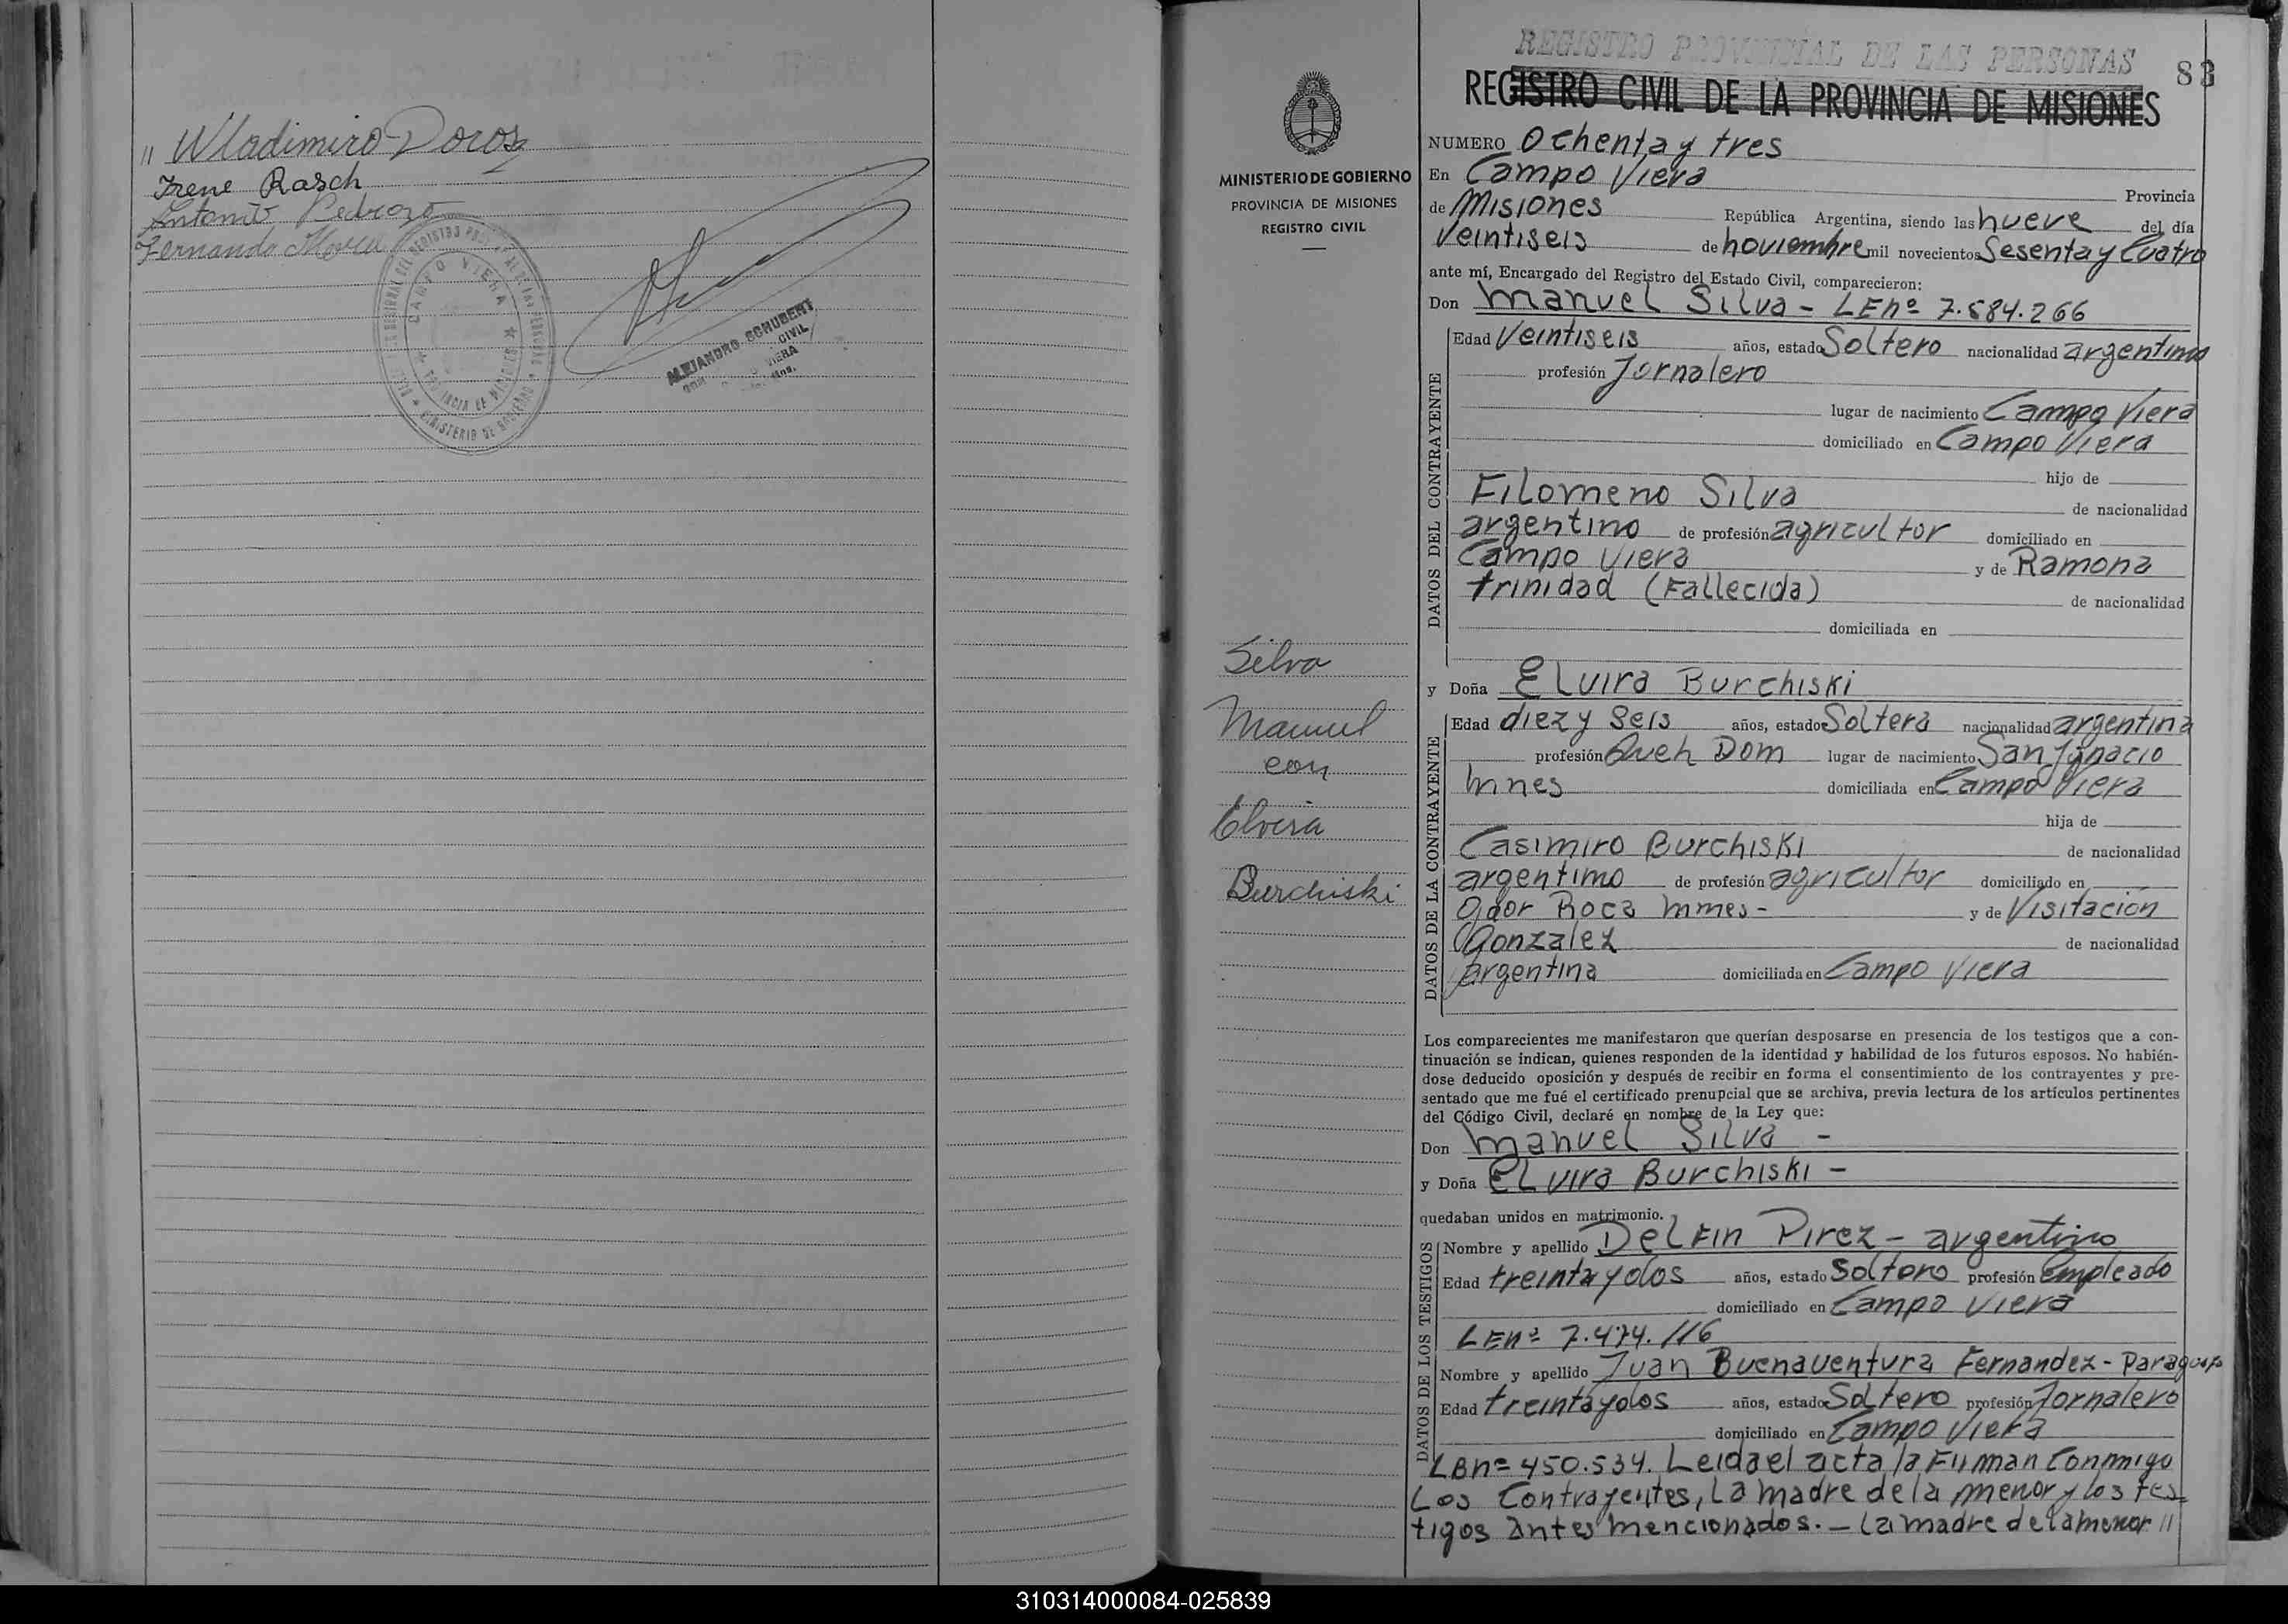 " Wladimiro Doros
Irene Rasch
Antonio Pedrozo
Fernando
CAMPO VIERA
PROVINCIA DE MISIONES
MINISTERIO DE GOBIERNO
ALEJANDRO SCHUBERT
CIVIL
VIERA
REGISTRO PROVINCIAL DE LAS PERSONAS
83
REGISTRO CIVIL DE LA PROVINCIA DE MISIONES
MINISTERIO DE GOBIERNO
PROVINCIA DE MISIONES
REGISTRO CIVIL
Silva
Manuel
con
Elvira
Burchiski
NUMERO Ochenta y tres
En Campo Viera Provincia
de Misiones República Argentina, siendo las nueve del día
Veintiseis de noviembre mil novecientos Sesenta y Cuatro
ante mí, Encargado del Registro del Estado Civil, comparecieron:
Don Manuel Silva - LEnº 7.584.266
DATOS DEL CONTRAYENTE
Edad Veintiseis años, estado Soltero nacionalidad argentino
profesión Jornalero
lugar de nacimiento Campo Viera
domiciliado en Campo Viera
hijo de
Filomeno Silva de nacionalidad
argentino de profesión agricultor domiciliado en
Campo Viera y de Ramona
trinidad (Fallecida) de nacionalidad
domiciliada en
y Doña Elvira Burchiski
DATOS DE LA CONTRAYENTE
Edad diez y seis años, estado Soltera nacionalidad argentina
profesión Queh Dom lugar de nacimiento San Ignacio
Mnes domiciliada en Campo Viera
hija de
Casimiro Burchiski de nacionalidad
argentino de profesión agricultor domiciliado en
Gdor Roca Mnes - y de Visitación
Gonzalez de nacionalidad
argentina domiciliada en Campo Viera
Los comparecientes me manifestaron que querían desposarse en presencia de los testigos que a con-
tinuación se indican, quienes responden de la identidad y habilidad de los futuros esposos. No habién-
dose deducido oposición y después de recibir en forma el consentimiento de los contrayentes y pre-
sentado que me fué el certificado prenupcial que se archiva, previa lectura de los artículos pertinentes
del Código Civil, declaré en nombre de la Ley que:
Don Manuel Silva -
y Doña Elvira Burchiski -
quedaban unidos en matrimonio.
DATOS DE LOS TESTIGOS
Nombre y apellido Delfin Pirez - argentino
Edad treinta y dos años, estado Soltero profesión Empleado
domiciliado en Campo Viera
LEnº 7.474.116
Nombre y apellido Juan Buenaventura Fernandez - Paraguayo
Edad treinta y dos años, estado Soltero profesión Jornalero
domiciliado en Campo Viera
LBnº 450.534. Leida el acta la Firman Conmigo
Los Contrayentes, La madre de la menor y los tes-
tigos antes mencionados. - La madre de la menor //
310314000084-025839